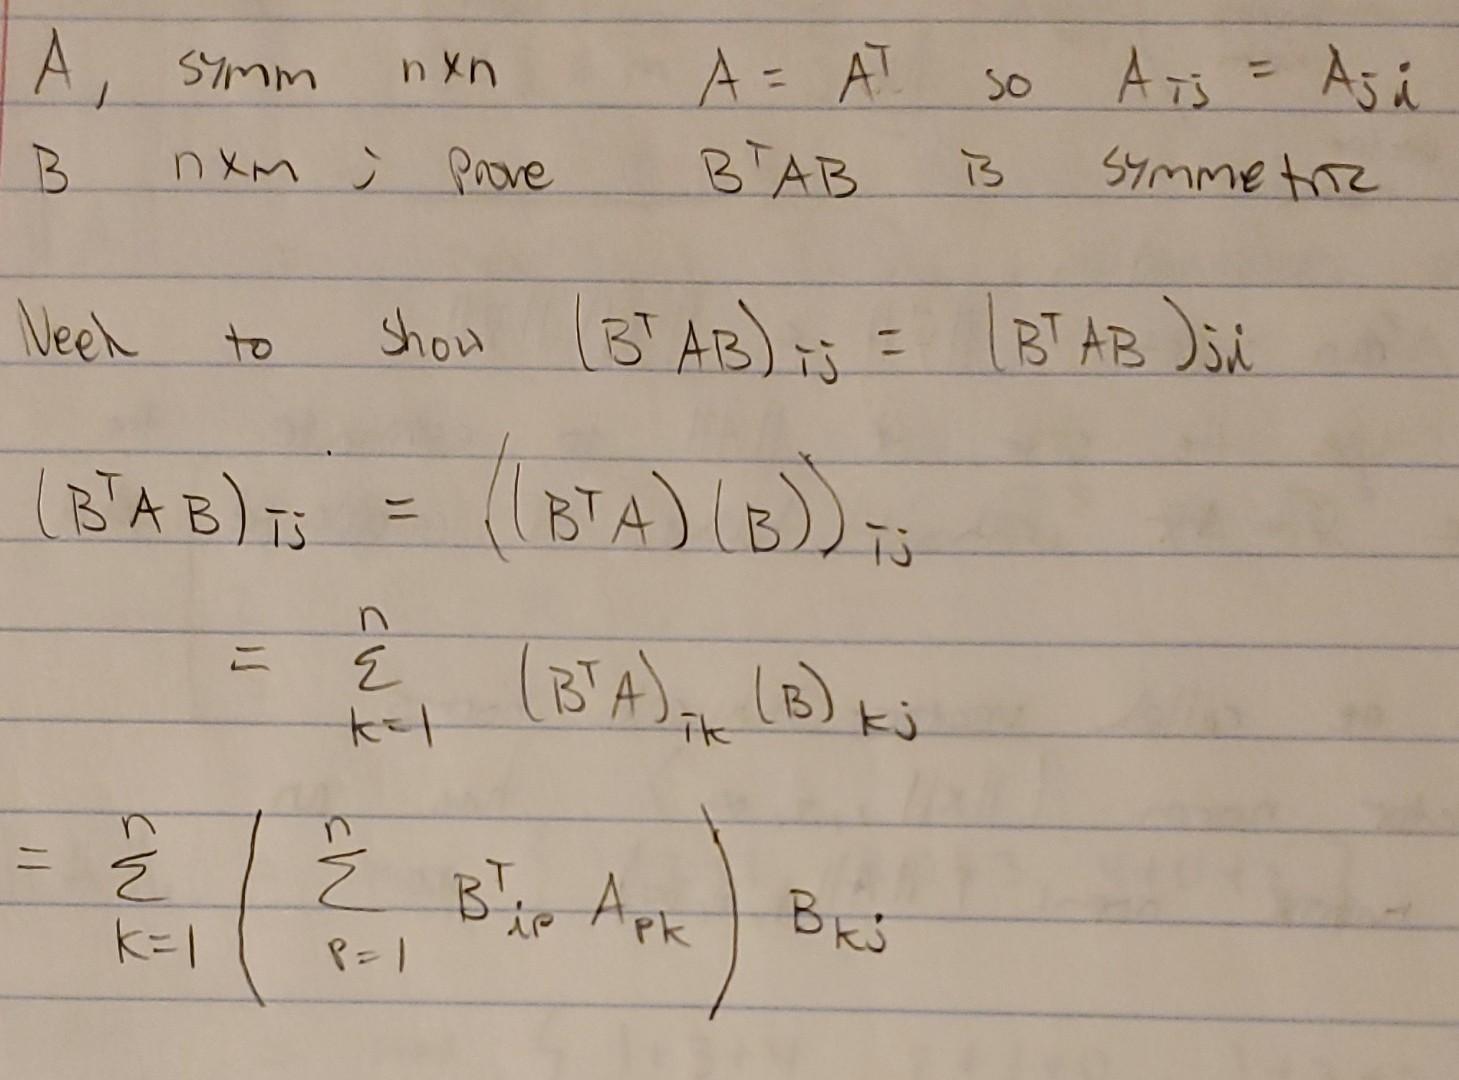 A, symm n×n A = Aᵀ so Aᵢⱼ = Aⱼᵢ
B n×m ; Prove BᵀAB is symmetric
Need to show (BᵀAB)ᵢⱼ = (BᵀAB)ⱼᵢ
(BᵀAB)ᵢⱼ = ((BᵀA)(B))ᵢⱼ
= Σ_{k=1}^{n} (BᵀA)_{ik} (B)_{kj}
= Σ_{k=1}^{n} ( Σ_{p=1}^{n} Bᵀ_{ip} A_{pk} ) B_{kj}